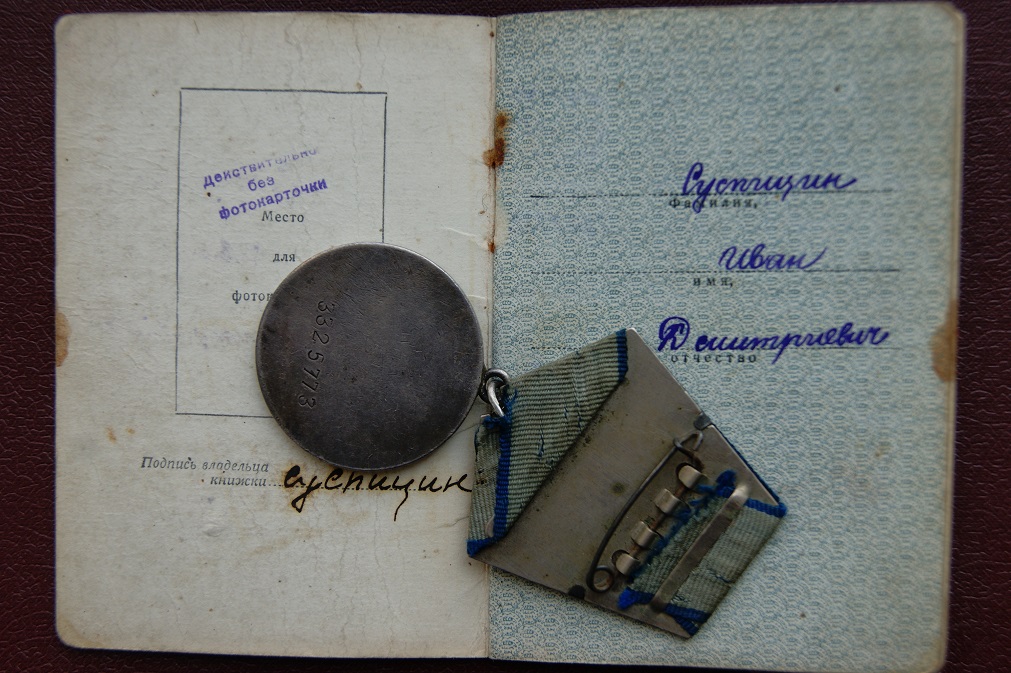 Действительно
без
фотокарточки
Место
для
3325773
Подпись владельца
книжки
Суспицин
Суспицин
Фамилия,
Иван
имя,
Дмитриевич
отчество